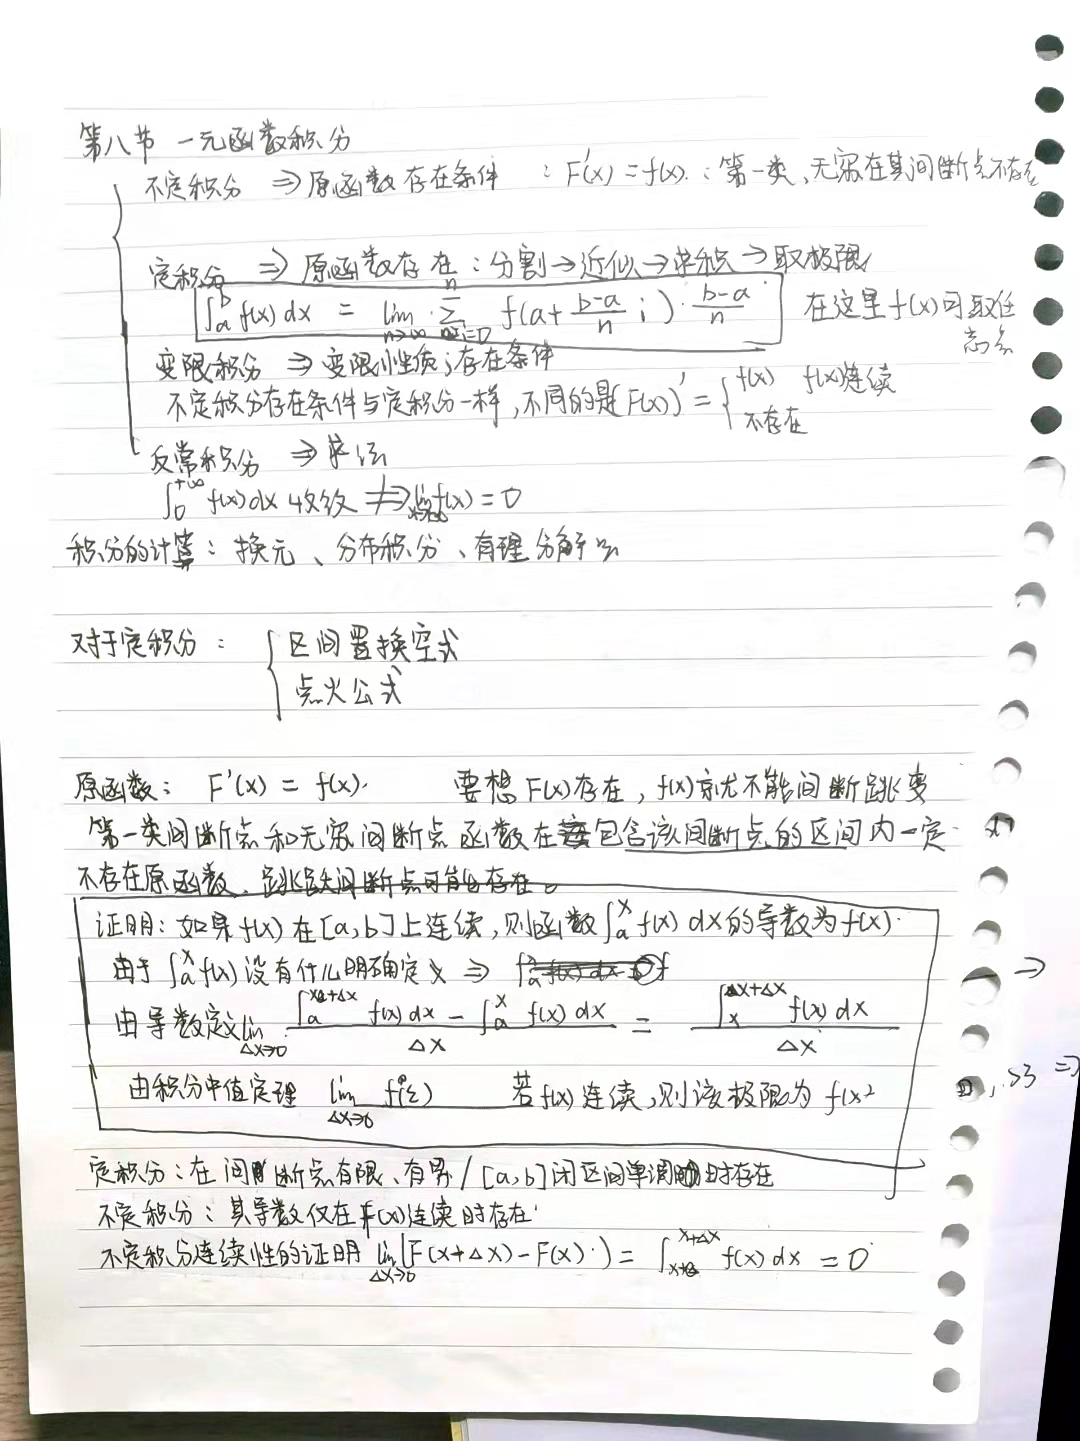 第八节 一元函数积分
不定积分 ⇒ 原函数存在条件 : F'(x) = f(x). : 第一类、无穷在其间断点不存在
定积分 ⇒ 原函数存在 : 分割→近似→求积→取极限
∫_a^b f(x) dx = lim_{n→∞} Σ_{i=0}^n f(a + (b-a)/n i) · (b-a)/n 在这里 f(x) 可取任
意点
变限积分 ⇒ 变限性质；存在条件
不定积分存在条件与定积分一样，不同的是(F(x))' = { f(x) f(x)连续
不存在
反常积分 ⇒ 求法
∫_0^{+∞} f(x) dx 收敛 ⇏ lim f(x) = 0
积分的计算：换元、分布积分、有理分解
对于定积分： { 区间置换空式
点火公式
原函数： F'(x) = f(x). 要想 F(x) 存在，f(x) 就不能间断跳变
第一类间断点和无穷间断点函数在包含该间断点的区间内一定
不存在原函数、跳跃间断点可能存在。
证明：如果 f(x) 在 [a, b] 上连续，则函数 ∫_a^x f(x) dx 的导数为 f(x).
由于 ∫_a^x f(x) 没有什么明确定义 ⇒
由导数定义 lim_{Δx→0} (∫_a^{x+Δx} f(x) dx - ∫_a^x f(x) dx) / Δx = (∫_x^{x+Δx} f(x) dx) / Δx
由积分中值定理 lim_{Δx→0} f(ξ) 若 f(x) 连续，则该极限为
定积分：在间断点有限、有界 / [a, b] 闭区间单调时存在
不定积分：其导数仅在 f(x) 连续时存在
不定积分连续性的证明 lim_{Δx→0} (F(x+Δx) - F(x)) = ∫_x^{x+Δx} f(x) dx = 0